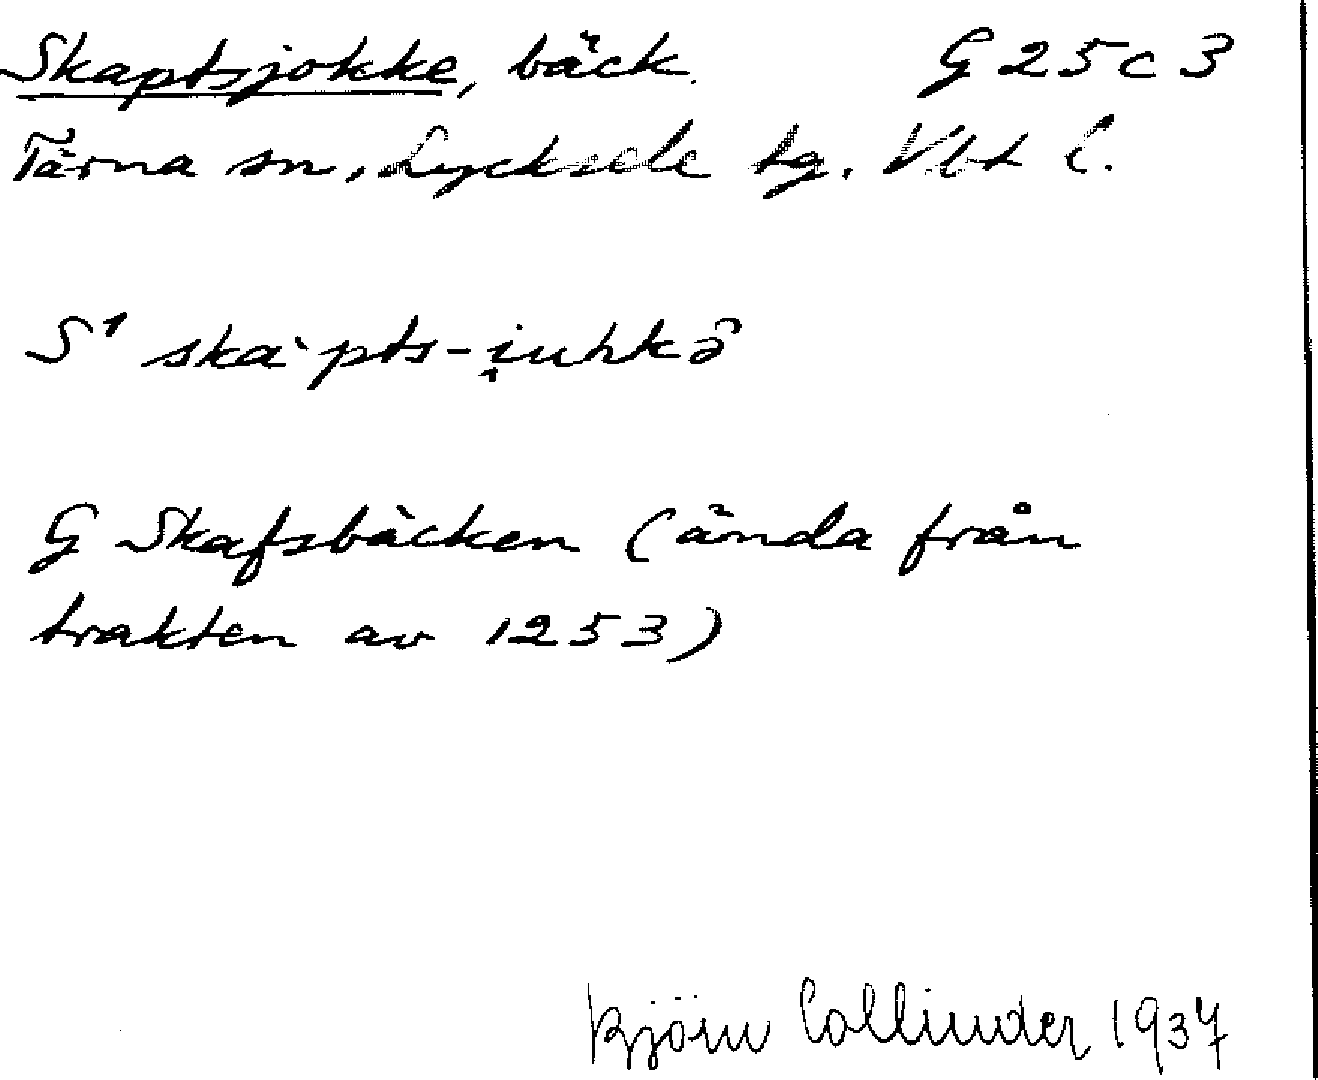 Skaptsjokke, bäck. G 25 c 3
Tärna sn, Lycksele lg. Vbt l.
S¹ ska`pts-i̯uhkə̂
G Skafsbäcken (ända från
trakten av 1253)
Björn Collinder 1937